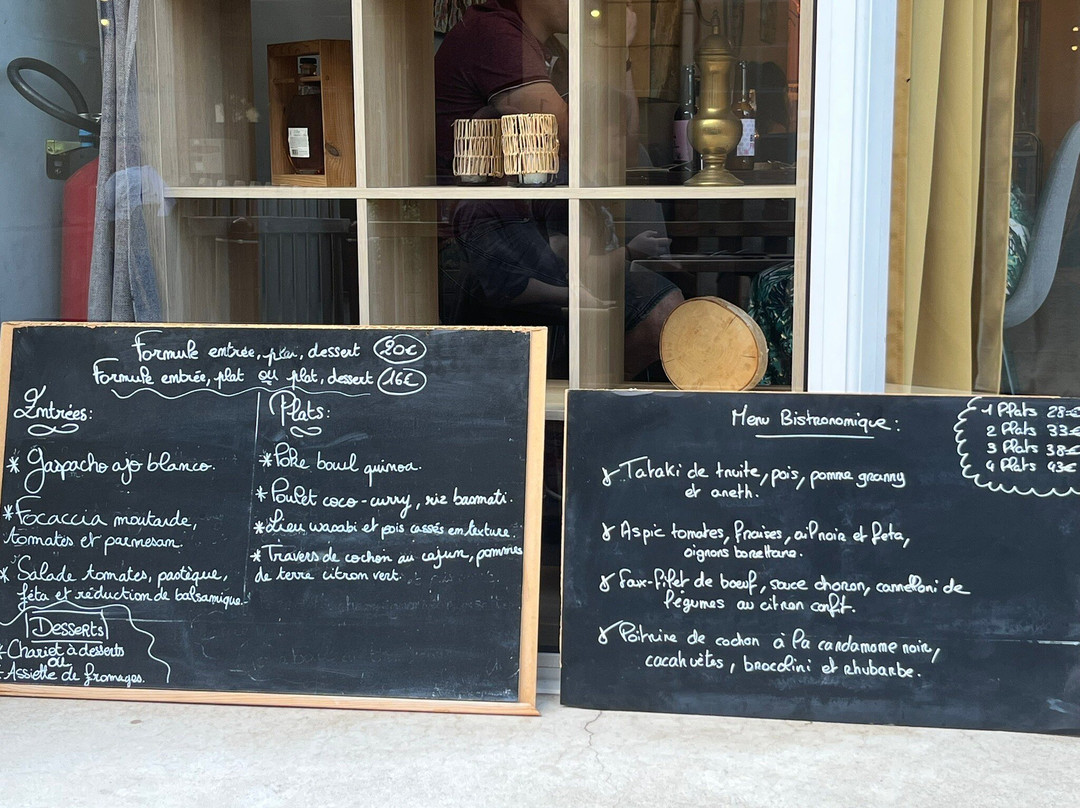 Formule entrée, plat, dessert 20€
Formule entrée, plat ou plat, dessert 16€
Entrées:
* Gaspacho ajo blanco.
* Focaccia moutarde,
tomates et parmesan.
* Salade tomates, pastèque,
féta et réduction de balsamique.
Desserts
* Chariot à desserts
ou
- Assiette de fromages.
Plats:
* Poke bowl quinoa.
* Poulet coco-curry, riz basmati.
* Lieu wasabi et pois cassés en texture.
* Travers de cochon au cajun, pommes
de terre citron vert.
Menu Bistronomique:
1 Plats 28€
2 Plats 33€
3 Plats 38€
4 Plats 43€
Tataki de truite, pois, pomme granny
et aneth.
Aspic tomates, fraises, ail noir et feta,
oignons borettane.
Faux-filet de boeuf, sauce choron, cannelloni de
légumes au citron confit.
Poitrine de cochon à la cardamome noire,
cacahuètes, brocolini et rhubarbe.